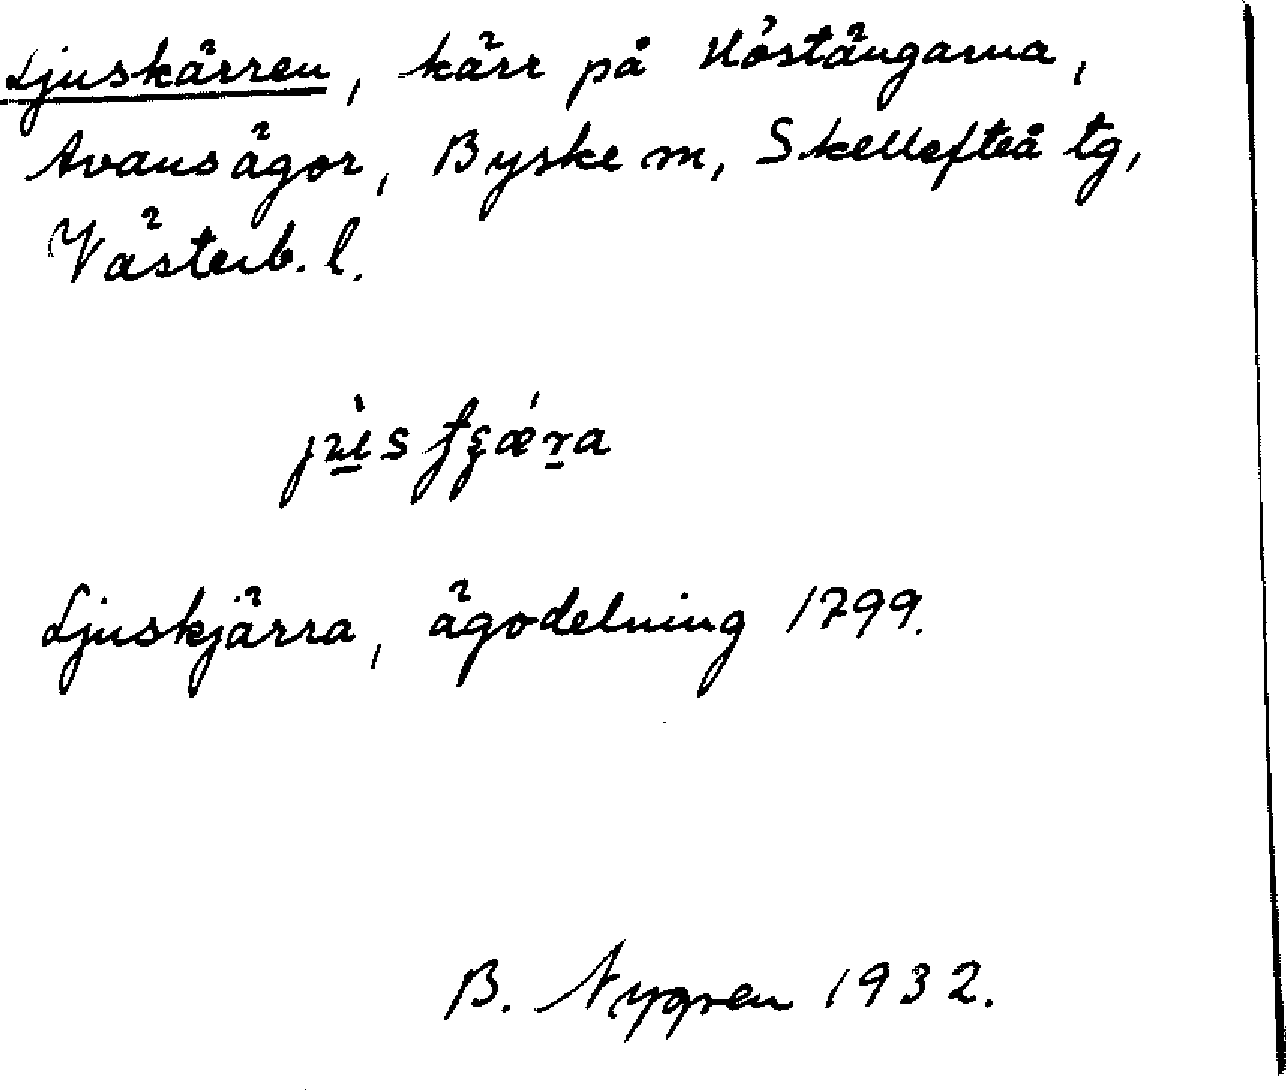 Ljuskärren, kärr på Höstängarna,
Avans ägor, Byske m, Skellefteå tg,
Västerb. l.
Ljuskjärra, ägodelning 1799.
B. Nygren 1932.